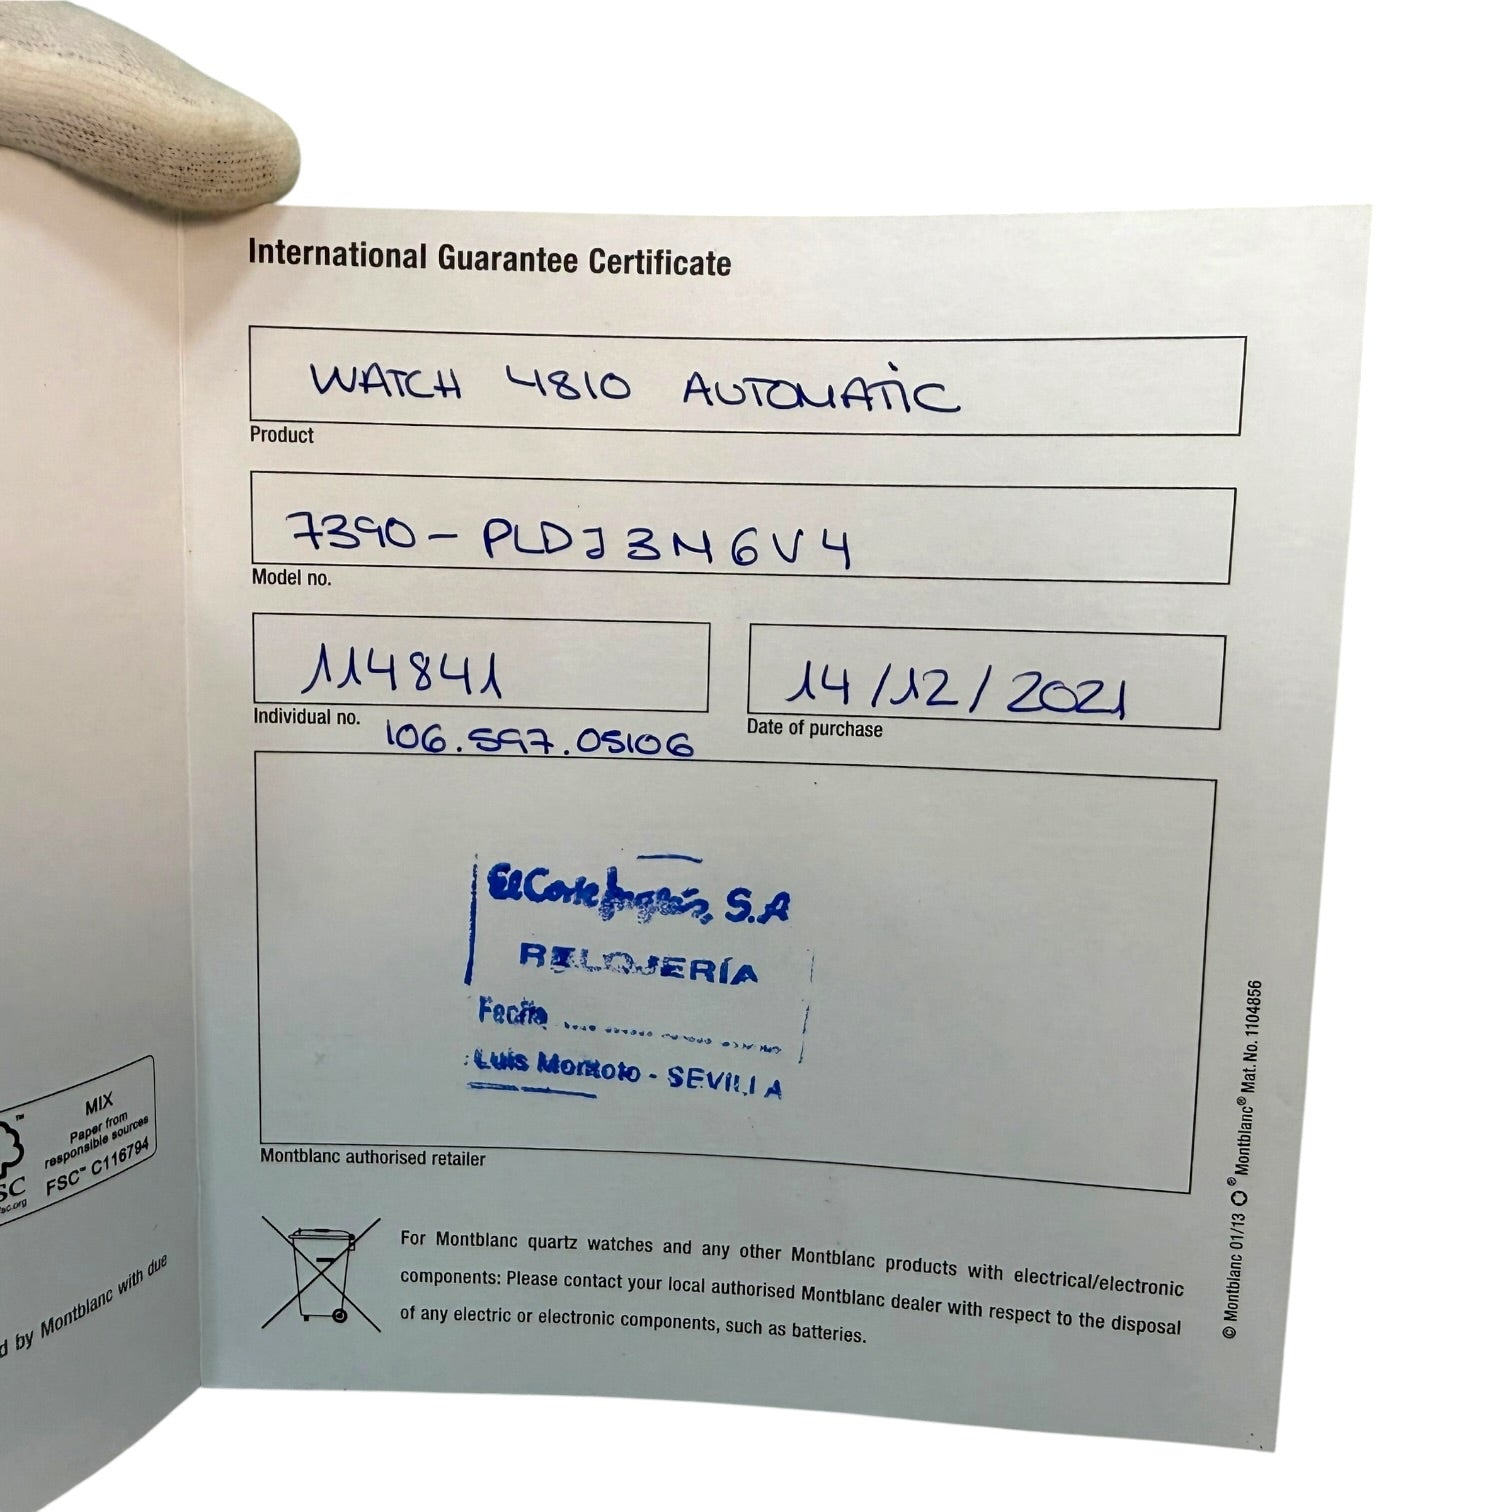 International Guarantee Certificate
WATCH 4810 AUTOMATIC
Product
7390-PLDJ3N6V4
Model no.
114841
Individual no.
106.597.05106
14/12/2021
Date of purchase
El Corte Inglés, S.A
RELOJERÍA
Fecha
Luis Montoto - SEVILLA
Montblanc authorised retailer
For Montblanc quartz watches and any other Montblanc products with electrical/electronic
components: Please contact your local authorised Montblanc dealer with respect to the disposal
of any electric or electronic components, such as batteries.
© Montblanc 01/13 ® Montblanc® Mat. No. 1104856
MIX
Paper from
responsible sources
FSC™ C116794
™
SC
sc.org
d by Montblanc with due